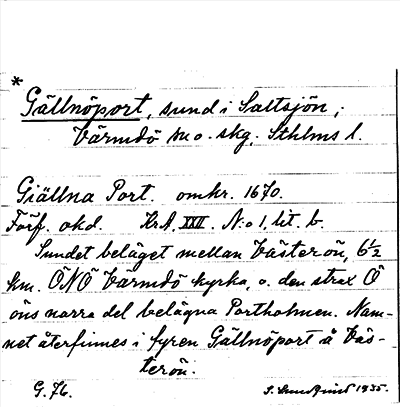 *
Gällnöport, sund i Saltsjön,
Värmdö sn o. skg. Sthlms l.
Giällna Port. omkr. 1670.
Förf. okd. KrA. XXII. N:o 1, lit. b.
Sundet beläget mellan Västerön, 6 1/2
km. ÖNÖ Värmdö kyrka, o. den strax Ö
öns norra del belägna Portholmen. Nam-
net återfinnes i fyren Gällnöport å Väs-
terön.
G. 76. S. Sundquist 1935.